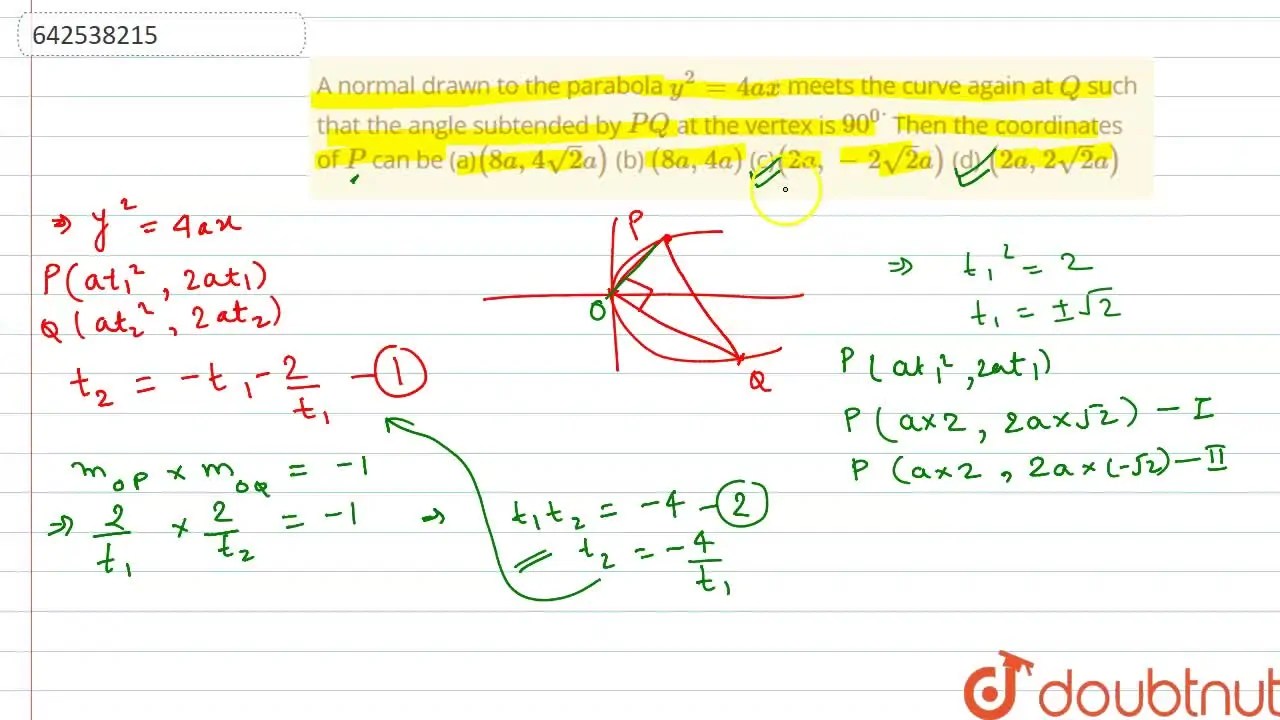 642538215
A normal drawn to the parabola y² = 4ax meets the curve again at Q such
that the angle subtended by PQ at the vertex is 90⁰· Then the coordinates
of P can be (a)(8a, 4√2a) (b) (8a, 4a) (c)(2a, −2√2a) (d) (2a, 2√2a)
⇒ y² = 4ax
P(at₁², 2at₁)
Q(at₂², 2at₂)
t₂ = -t₁ - 2/t₁ - ①
m_OP × m_OQ = -1
⇒ 2/t₁ × 2/t₂ = -1 → t₁t₂ = -4 - ②
t₂ = -4/t₁
P
O
Q
⇒ t₁² = 2
t₁ = ±√2
P(at₁², 2at₁)
P(a×2, 2a×√2) - I
P(a×2, 2a×(-√2) - II
doubtnut